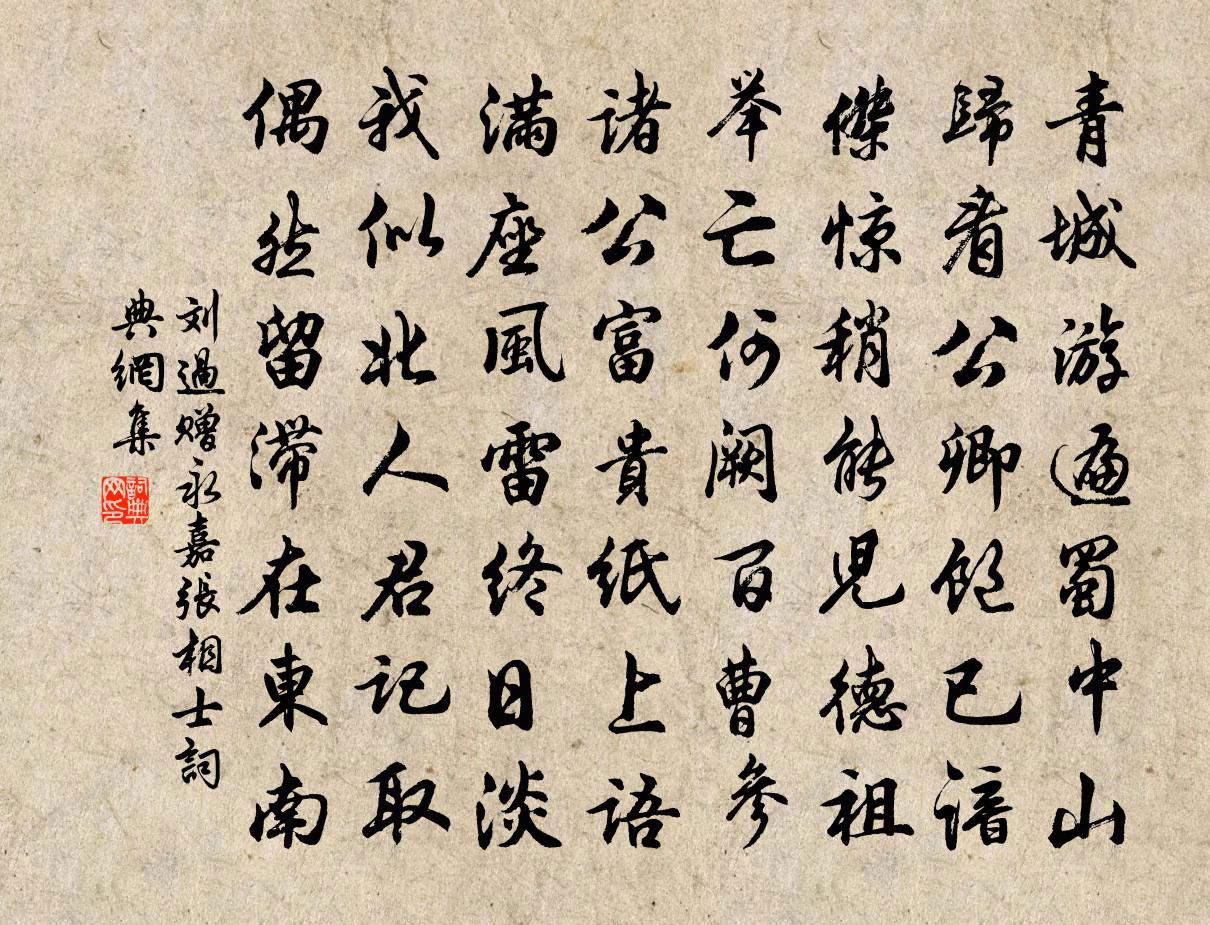 青城游遍蜀中山
歸看公卿飽已谙
傑惊稍能児德祖
举亡何阙百曹参
诸公富貴纸上语
满座風雷终日淡
我似北人君记取
偶然留滞在東南
刘過赠永嘉張相士詞
典網集
詞典网印